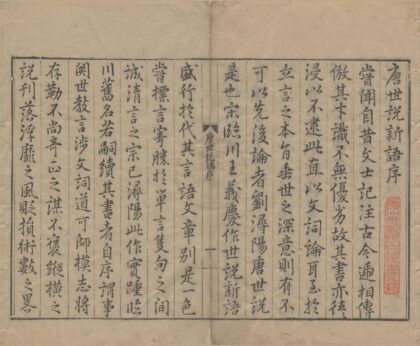 唐世說新語序
嘗聞自昔文士記注古今遞相傳
倣其才識不無優劣故其書亦往
浸以不逮此直以文詞論耳至於
立言之本旨垂世之深意則有不
可以先後論者劉潯陽唐世說
是也宗臨川王義慶作世說新語
盛行於代其言語文章別是一色
嘗標言寄勝於單言隻句之間
誠清言之宗已潯陽此作實踵臨
川舊名若嗣續其書者自序謂事
關世教言涉文詞道可師模志將
存勸不尚奇正之謀不褒縱橫之
說刊落浮靡之風貶損術數之畧
唐世說序
一